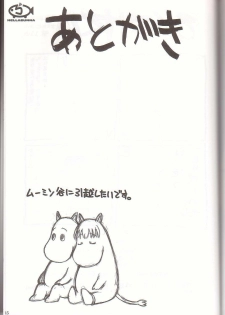 あとがき
ムーミン谷に引越したいです。